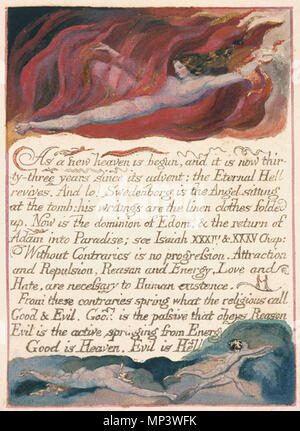 As a new heaven is begun, and it is now thir-
ty-three years since its advent: the Eternal Hell
revives. And lo! Swedenborg is the Angel sitting
at the tomb: his writings are the linen clothes folded
up. Now is the dominion of Edom, & the return of
Adam into Paradise; see Isaiah XXXIV & XXXV Chap:
Without Contraries is no progression. Attraction
and Repulsion, Reason and Energy, Love and
Hate, are necessary to Human existence.
From these contraries spring what the religious call
Good & Evil. Good is the passive that obeys Reason
Evil is the active springing from Energy
Good is Heaven. Evil is Hell.
alamy
Image ID: MP3WFK
www.alamy.com